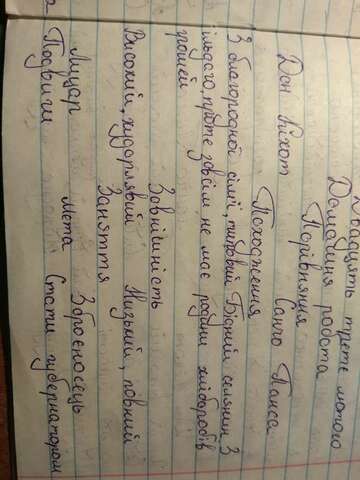 Двадцять третє лютого
Домашня робота
Порівняння
Дон Кіхот Санчо Панса
Походження
З благородної сім'ї, типовий Бідний селянин, З
ідальго, проте зовсім не має родини хліборобів
грошей
Зовнішність
Високий, худорлявий Низький, повний
Заняття
Лицар Зброєносець
Мета
Подвиги Стати губернатором